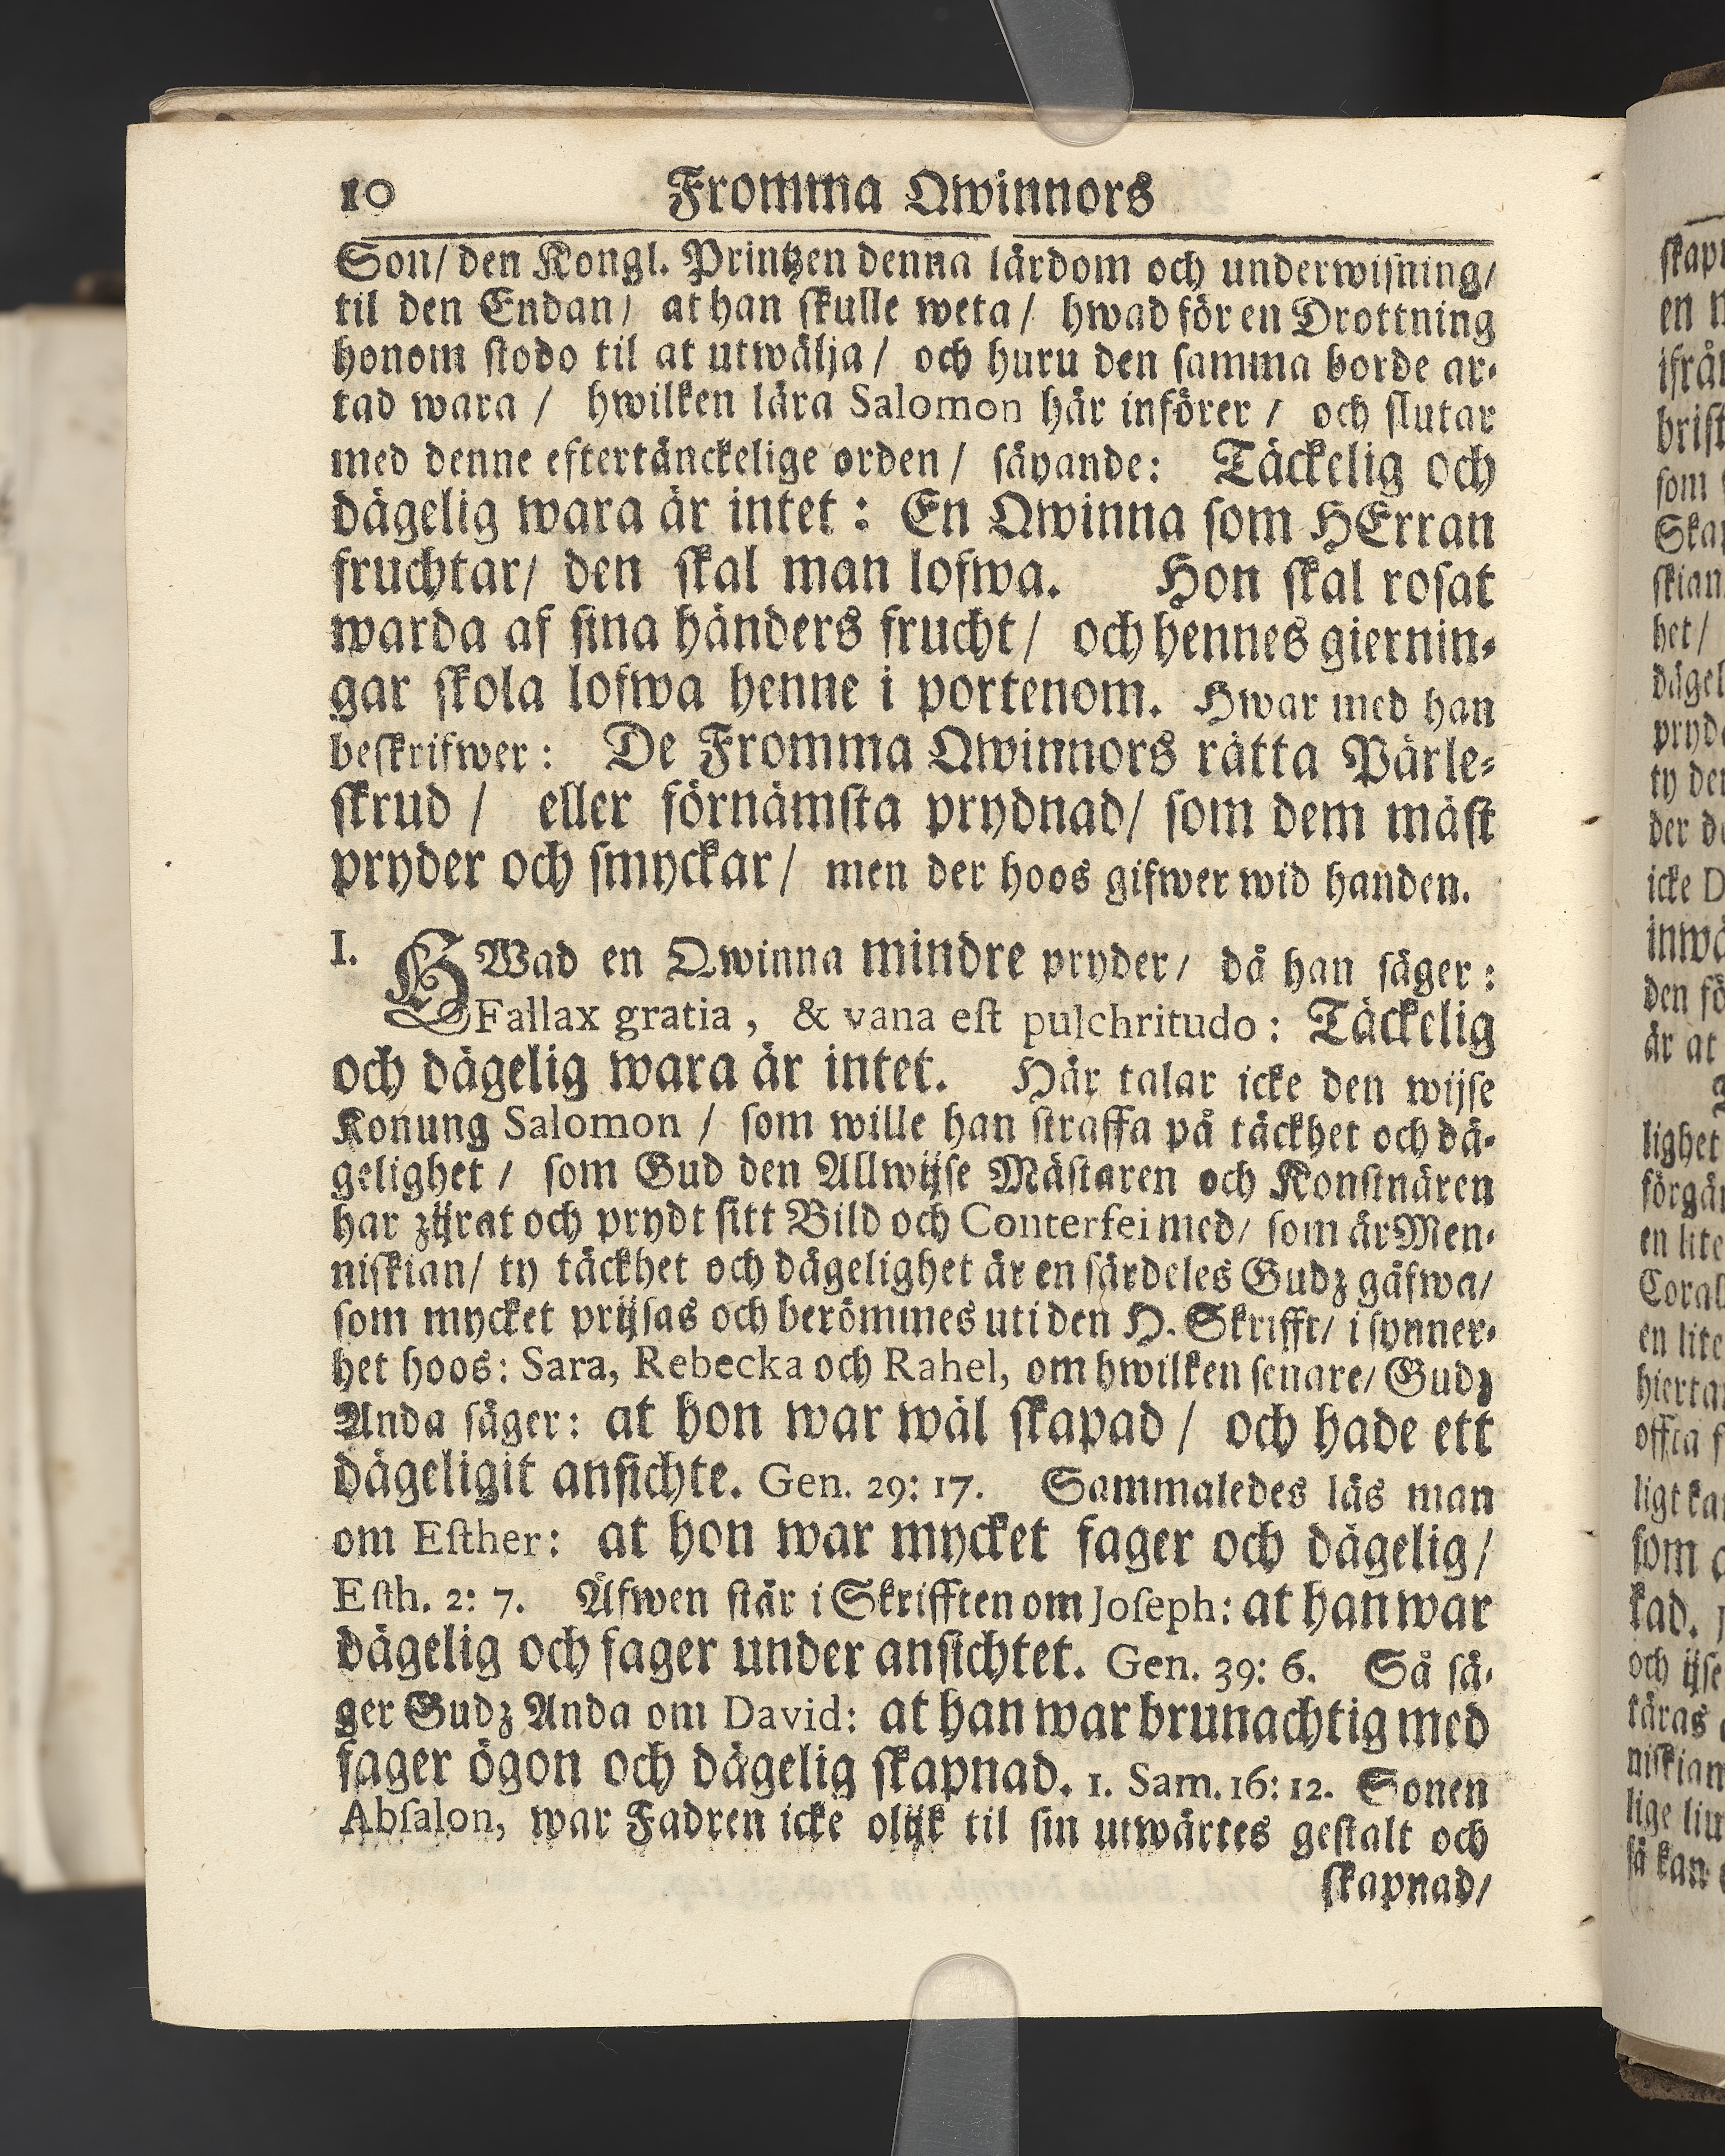 10 Fromma Qwinnors
Son/ den Kongl. Printzen denna lärdom och underwisning/
til den Endan/ at han skulle weta/ hwad för en Drottning
honom stodo til at utwälja/ och huru den samma borde ar-
tad wara / hwilken lära Salomon här införer / och slutar
med denne eftertänckelige orden/ säyande: Täckelig och
dägelig wara är intet : En Qwinna som HErran
fruchtar/ den skal man lofwa. Hon skal rosat
warda af sina händers frucht/ och hennes giernin-
gar skola lofwa henne i portenom. Hwar med han
beskrifwer: De Fromma Qwinnors rätta Pärle-
skrud / eller förnämsta prydnad/ som dem mäst
pryder och smyckar/ men der hoos gifwer wid handen.
I. HWad en Qwinna mindre pryder/ då han säger :
Fallax gratia, & vana est pulchritudo: Täckelig
och dägelig wara är intet. Här talar icke den wijse
Konung Salomon / som wille han straffa på täckhet och dä-
gelighet / som Gud den Allwijse Mästaren och Konstnären
har zijrat och prydt sitt Bild och Conterfei med/ som är Men-
niskian/ ty täckhet och dägelighet är en särdeles Gudz gåfwa/
som mycket prijsas och berömmes uti den H. Skrifft/ i synner-
het hoos: Sara, Rebecka och Rahel, om hwilken senare/ Gudz
Anda säger: at hon war wäl skapad / och hade ett
dägeligit ansichte. Gen. 29: 17. Sammaledes läs man
om Esther: at hon war mycket fager och dägelig/
Esth. 2: 7. Äfwen står i Skrifften om Joseph: at han war
dägelig och fager under ansichtet. Gen. 39: 6. Så sä-
ger Gudz Anda om David: at han war brunachtig med
fager ögon och dägelig skapnad. 1. Sam. 16: 12. Sonen
Absalon, war Fadren icke olijk til sin utwärtes gestalt och
skapnad/